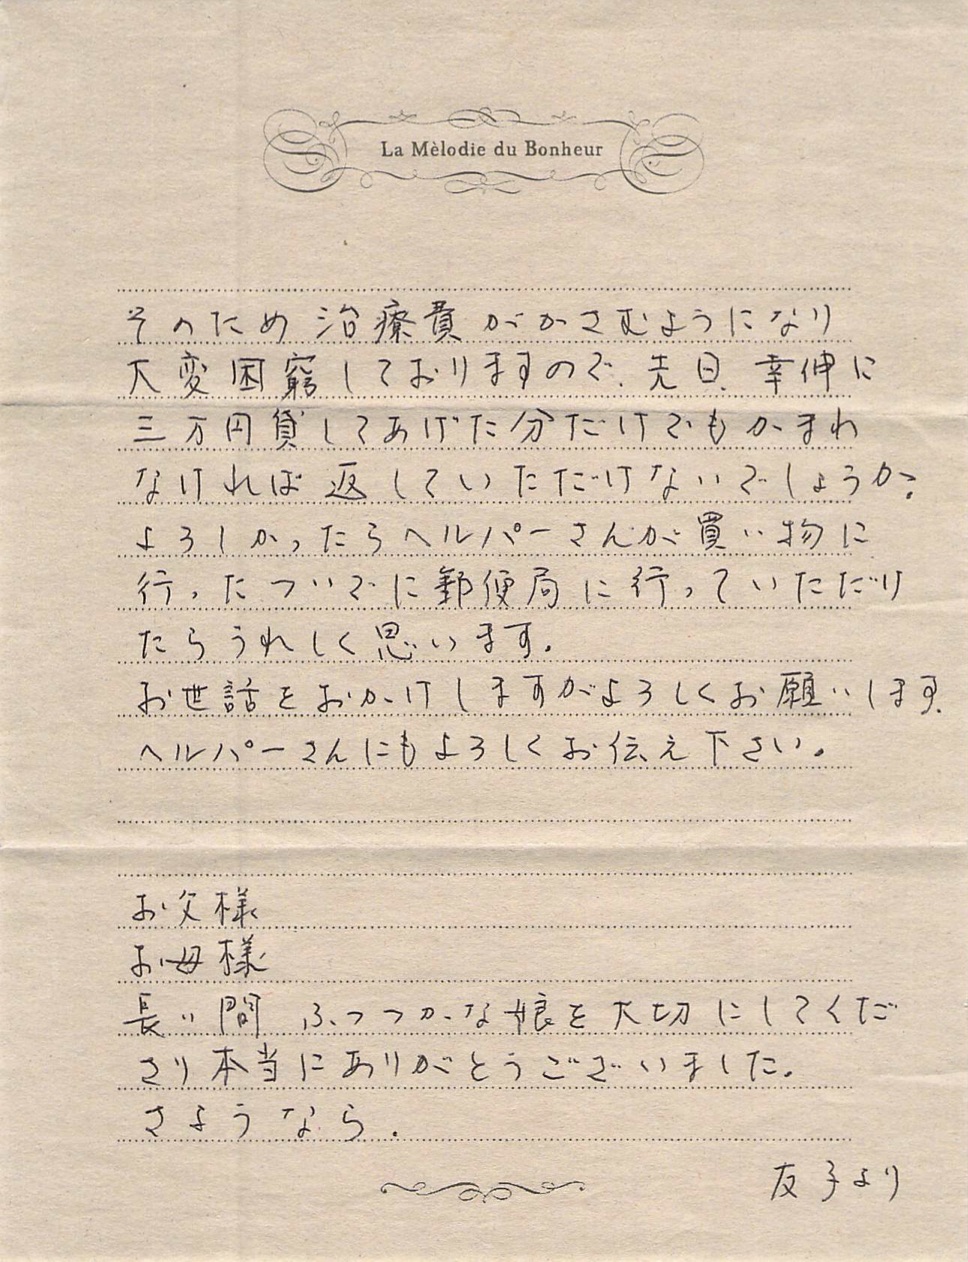 La Mèlodie du Bonheur
そのため治療費がかさむようになり
大変困窮しておりますので、先日、幸伸に
三万円貸してあげた分だけでもかまわ
なければ返していただけないでしょうか。
よろしかったらヘルパーさんが買い物に
行ったついでに郵便局に行っていただけ
たらうれしく思います。
お世話をおかけしますがよろしくお願いします。
ヘルパーさんにもよろしくお伝え下さい。
お父様
お母様
長い間ふつつかな娘を大切にしてくだ
さり本当にありがとうございました。
さようなら.
友子より